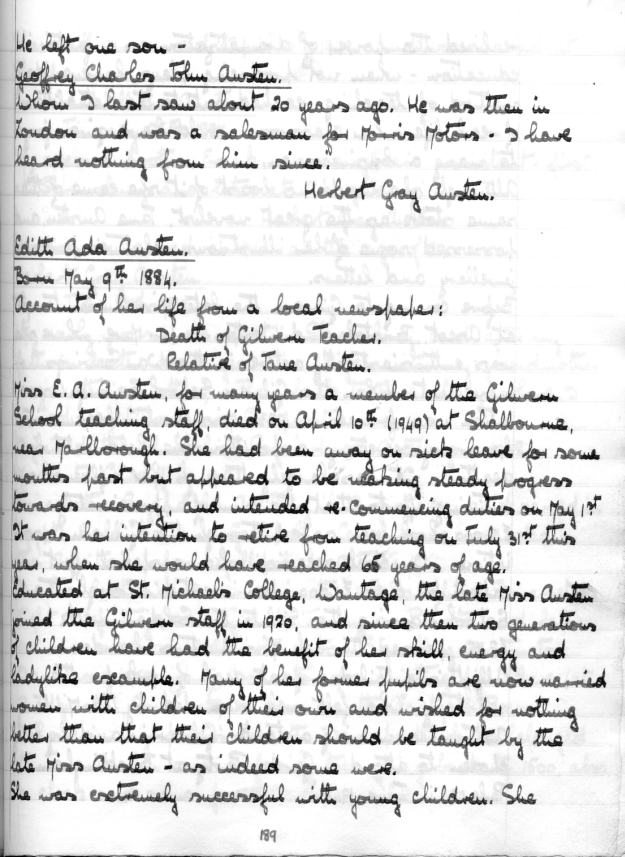 He left one son -
Geoffrey Charles John Austen.
Whom I last saw about 20 years ago. He was then in
London and was a salesman for Morris Motors - I have
heard nothing from him since.
Herbert Gray Austen.
Edith Ada Austen.
Born May 9th 1884.
Account of her life from a local newspaper:
Death of Gilwern Teacher.
Relative of Jane Austen.
Miss E. A. Austen, for many years a member of the Gilwern
School teaching staff, died on April 10th (1949) at Shalbourne,
near Marlborough. She had been away on sick leave for some
months past but appeared to be making steady progress
towards recovery, and intended re-commencing duties on May 1st
It was her intention to retire from teaching on July 31st this
year, when she would have reached 65 years of age.
Educated at St. Michaels College, Wantage, the late Miss Austen
joined the Gilwern staff in 1920, and since then two generations
of children have had the benefit of her skill, energy and
ladylike escample. Many of her former pupils are now married
women with children of their own and wished for nothing
better than that their children should be taught by the
late Miss Austen - as indeed some were.
She was esctremely successful with young children. She
189